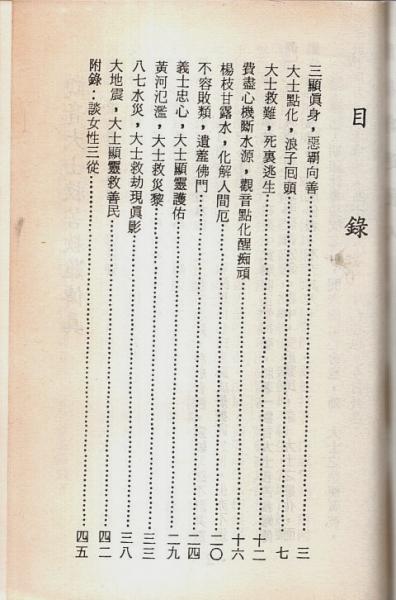 目錄
三顯眞身，惡覇向善……三
大士點化，浪子回頭……七
大士救難，死裏逃生……十二
費盡心機斷水源，觀音點化醒痴頑……十六
楊枝甘露水，化解人間厄……二〇
不容敗類，遺羞佛門……二四
義士忠心，大士顯靈護佑……二九
黃河氾濫，大士救災黎……三三
八七水災，大士救劫現眞影……三八
大地震，大士顯靈救善民……四二
附錄：談女性三從……四五